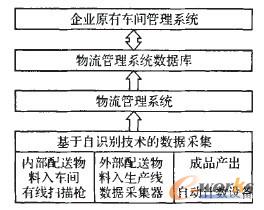 企业原有车间管理系统
物流管理系统数据库
物流管理系统
基于自识别技术的数据采集
内部配送物
料入车间
有线扫描枪
外部配送物
料入生产线
数据采集器
成品产出
自动计数设备